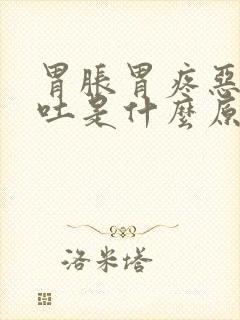 胃脹胃疼惡
吐是什麼原
洛米塔